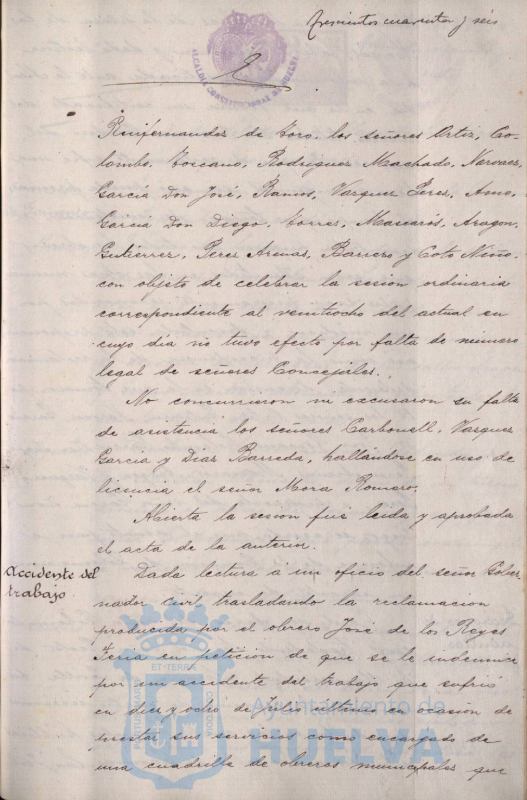 trescientos cuarenta y seis
ALCALDIA CONSTITUCIONAL DE HUELVA
Ruifernandez de Toro, los señores Ortiz, Co-
lombo, Toscano, Rodriguez Machado, Narvaez,
Garcia Don José, Ramos, Vazquez Perez, Amo,
Garcia Don Diego, Torres, Mascarós, Aragon,
Gutierrez, Perez Arenas, Barrero y Coto Niño,
con objeto de celebrar la sesion ordinaria
correspondiente al veintiocho del actual en
cuyo dia no tuvo efecto por falta de número
legal de señores Concejales.
No concurrieron ni excusaron su falta
de asistencia los señores Carbonell, Vazquez
Garcia y Diaz Barreda, hallándose en uso de
licencia el señor Mora Romero.
Abierta la sesion fué leida y aprobada
el acta de la anterior.
Accidente del
trabajo
Dada lectura á un oficio del señor Gober-
nador civil trasladando la reclamacion
producida por el obrero José de los Reyes
Feria en peticion de que se le indemnice
por un accidente del trabajo que sufrió
en diez y ocho de Julio último en ocasion de
prestar sus servicios como encargado de
una cuadrilla de obreros municipales que
ET TERRÆ
PORTUS MARIS
CUSTODIA
Ayuntamiento de
HUELVA